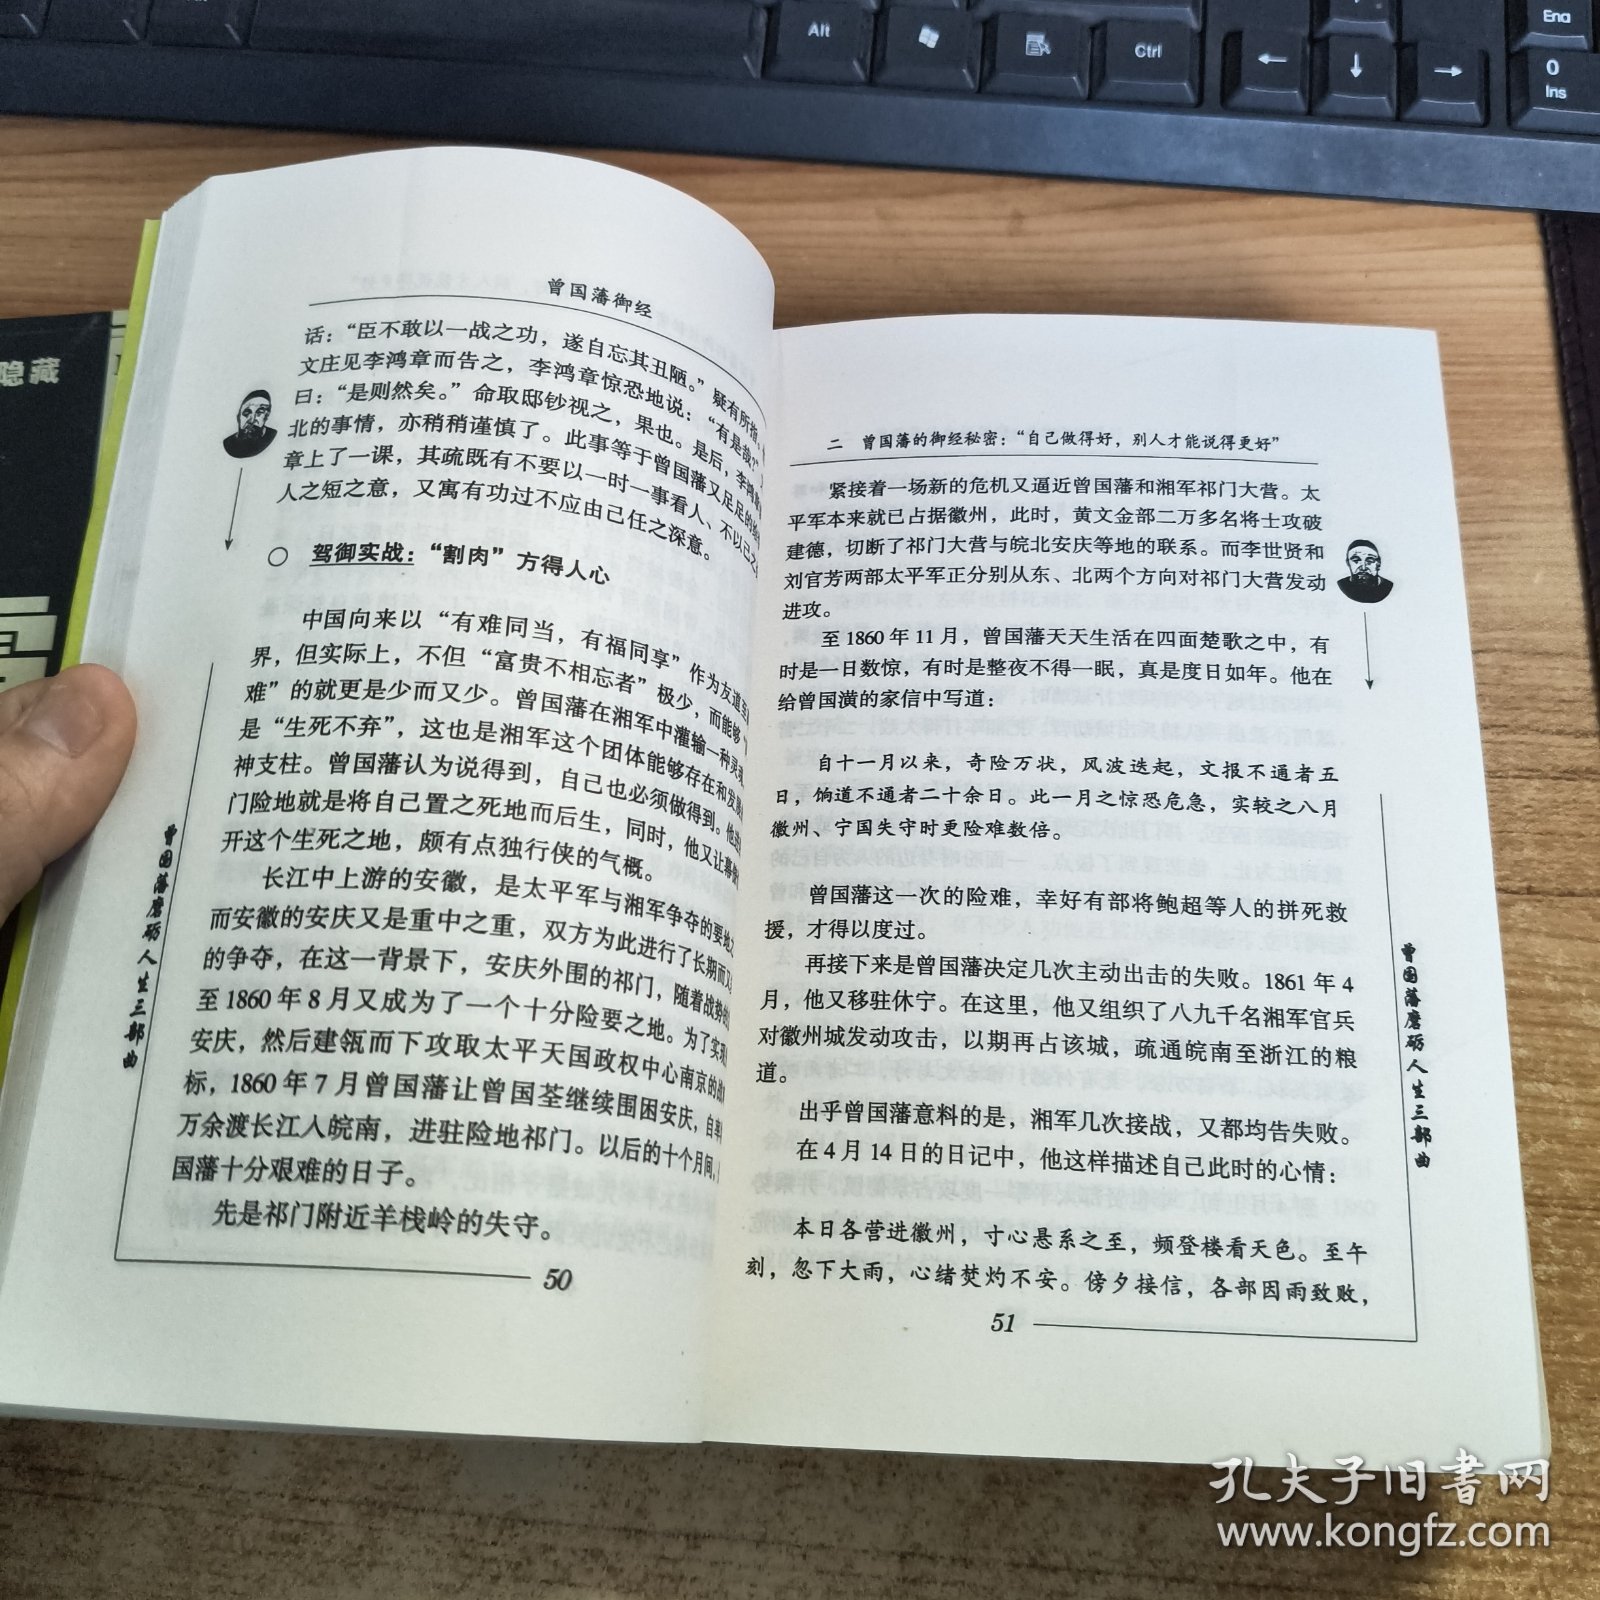 Alt
Ctrl
End
0
Ins
隐藏
曾国藩御经
话：“臣不敢以一战之功，遂自忘其丑陋。”疑有所指，
文庄见李鸿章而告之，李鸿章惊恐地说：“有是哉？”
曰：“是则然矣。”命取邸钞视之，果也。是后，李鸿章
北的事情，亦稍稍谨慎了。此事等于曾国藩又足足的给
章上了一课，其疏既有不要以一时一事看人、不以己之
人之短之意，又寓有功过不应由己任之深意。
○ 驾御实战：“割肉”方得人心
中国向来以“有难同当，有福同享”作为友道至
界，但实际上，不但“富贵不相忘者”极少，而能够“
难”的就更是少而又少。曾国藩在湘军中灌输一种灵魂
是“生死不弃”，这也是湘军这个团体能够存在和发展
神支柱。曾国藩认为说得到，自己也必须做得到。他进
门险地就是将自己置之死地而后生，同时，他又让幕僚
开这个生死之地，颇有点独行侠的气概。
长江中上游的安徽，是太平军与湘军争夺的要地之
而安徽的安庆又是重中之重，双方为此进行了长期而又
的争夺，在这一背景下，安庆外围的祁门，随着战势的
至1860年8月又成为了一个十分险要之地。为了实现
安庆，然后建瓴而下攻取太平天国政权中心南京的战
标，1860年7月曾国藩让曾国荃继续围困安庆，自率
万余渡长江入皖南，进驻险地祁门。以后的十个月间，
国藩十分艰难的日子。
先是祁门附近羊栈岭的失守。
曾国藩磨砺人生三部曲
50
二 曾国藩的御经秘密：“自己做得好，别人才能说得更好”
紧接着一场新的危机又逼近曾国藩和湘军祁门大营。太
平军本来就已占据徽州，此时，黄文金部二万多名将士攻破
建德，切断了祁门大营与皖北安庆等地的联系。而李世贤和
刘官芳两部太平军正分别从东、北两个方向对祁门大营发动
进攻。
至1860年11月，曾国藩天天生活在四面楚歌之中，有
时是一日数惊，有时是整夜不得一眠，真是度日如年。他在
给曾国潢的家信中写道：
自十一月以来，奇险万状，风波迭起，文报不通者五
日，饷道不通者二十余日。此一月之惊恐危急，实较之八月
徽州、宁国失守时更险难数倍。
曾国藩这一次的险难，幸好有部将鲍超等人的拼死救
援，才得以度过。
再接下来是曾国藩决定几次主动出击的失败。1861年4
月，他又移驻休宁。在这里，他又组织了八九千名湘军官兵
对徽州城发动攻击，以期再占该城，疏通皖南至浙江的粮
道。
出乎曾国藩意料的是，湘军几次接战，又都均告失败。
在4月14日的日记中，他这样描述自己此时的心情：
本日各营进徽州，寸心悬系之至，频登楼看天色。至午
刻，忽下大雨，心绪焚灼不安。傍夕接信，各部因雨致败，
曾国藩磨砺人生三部曲
51
孔夫子旧书网
www.kongfz.com